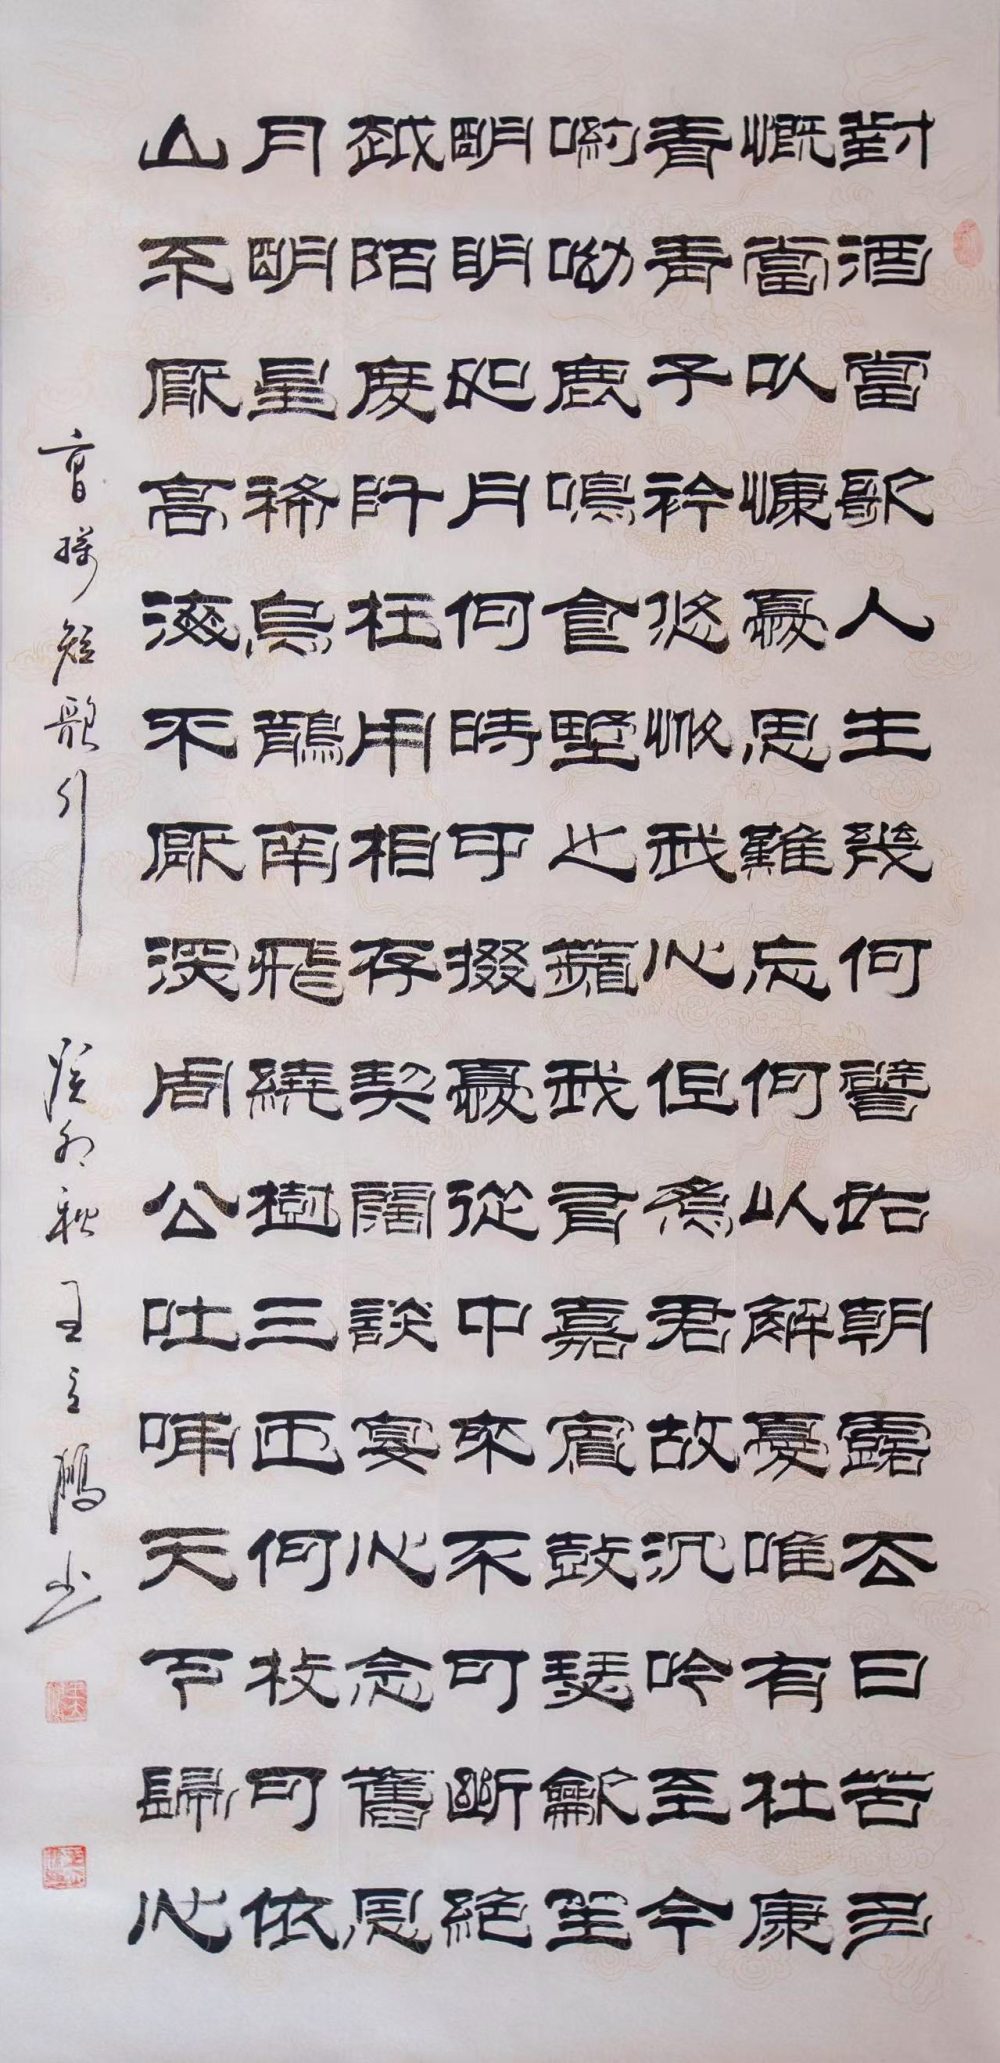 對酒當歌人生幾何譬如朝露去日苦多
慨當以慷憂思難忘何以解憂唯有杜康
青青子衿悠悠我心但為君故沉吟至今
呦呦鹿鳴食墅之蘋我有嘉賓鼓瑟龡笙
明明如月何時可掇憂從中來不可斷絕
越陌度阡枉用相存契闊談宴心念舊恩
月明星稀烏鵲南飛繞樹三匝何枝可依
山不厭高海不厭深周公吐哺天下歸心
曹操短歌行 癸卯秋王立鵬书